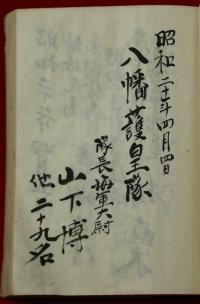 昭和二十年四月四日
八幡護皇隊
隊長海軍大尉
山下博
他二十九名